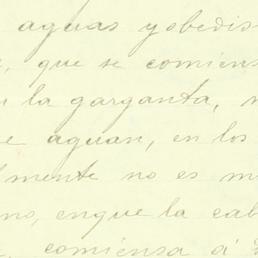 aguas y obedis
, que se comiens
la garganta,
e aguan, en los
mente no es m
no, en que la cab
, comiensa á